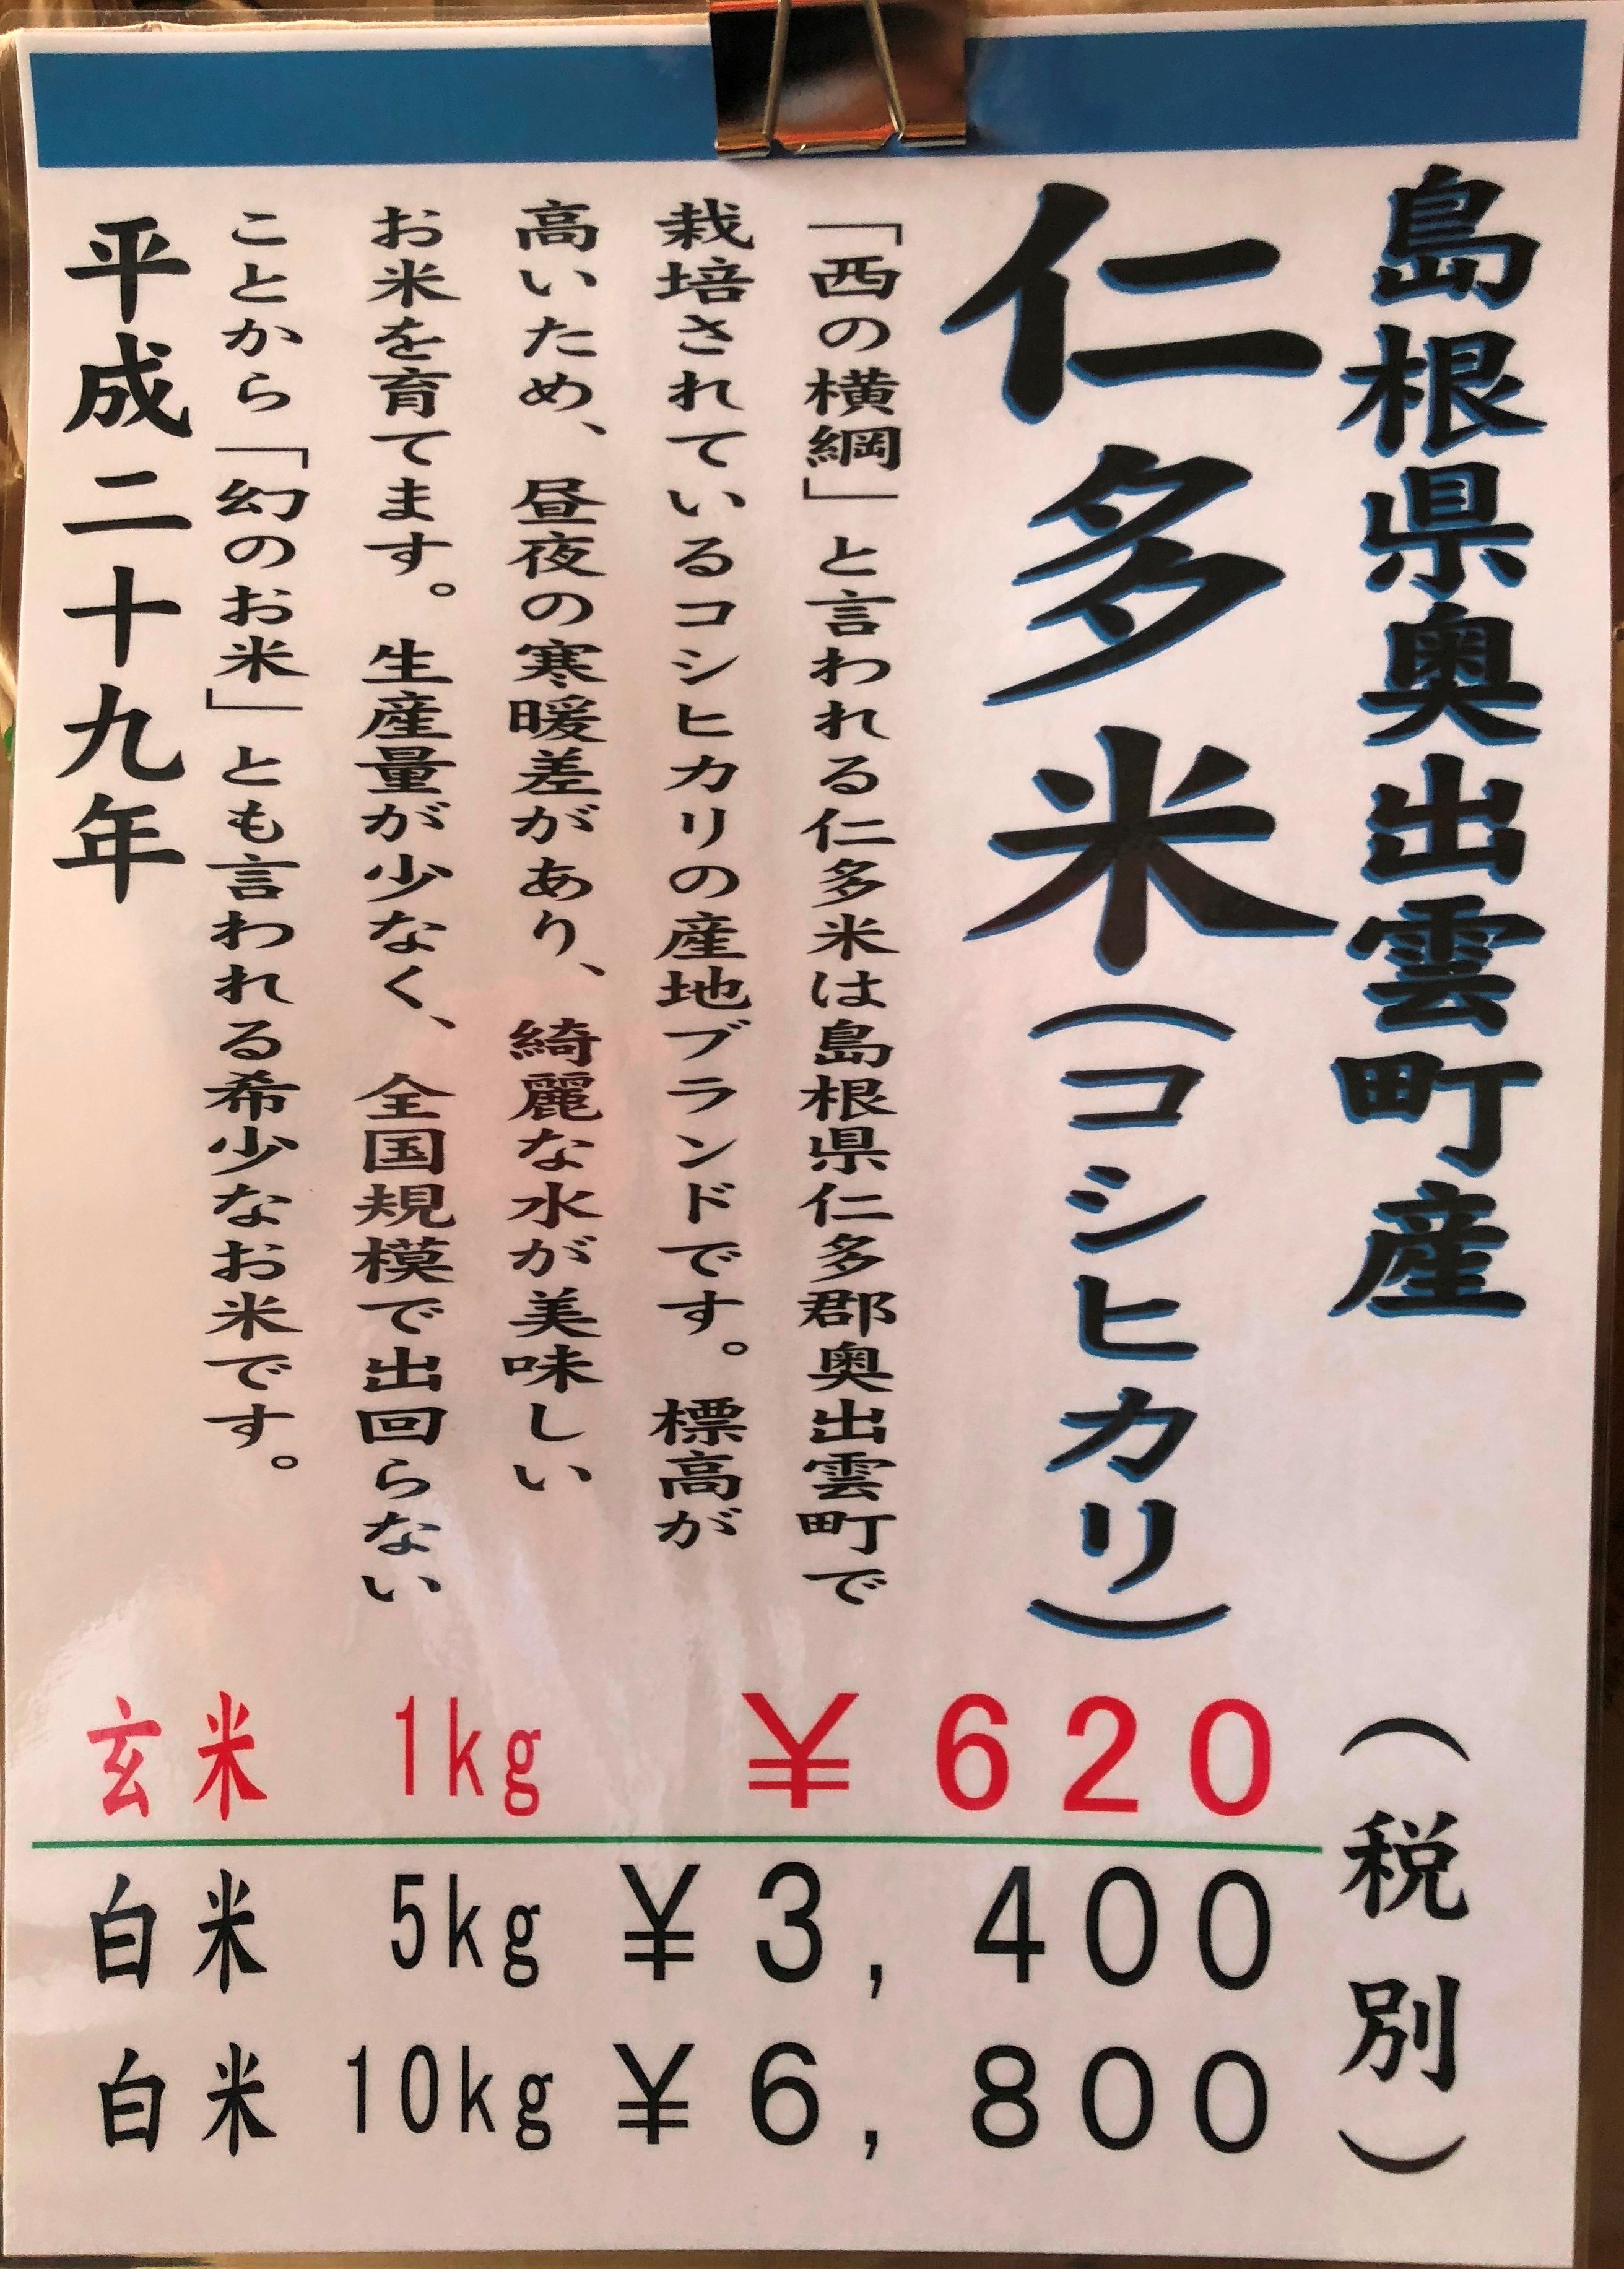 島根県奥出雲町産
仁多米(コシヒカリ)
「西の横綱」と言われる仁多米は島根県仁多郡奥出雲町で
栽培されているコシヒカリの産地ブランドです。標高が
高いため、昼夜の寒暖差があり、綺麗な水が美味しい
お米を育てます。生産量が少なく、全国規模で出回らない
ことから「幻のお米」とも言われる希少なお米です。
平成二十九年
玄米 1kg ¥620
白米 5kg ¥3,400
白米 10kg ¥6,800
(税別)